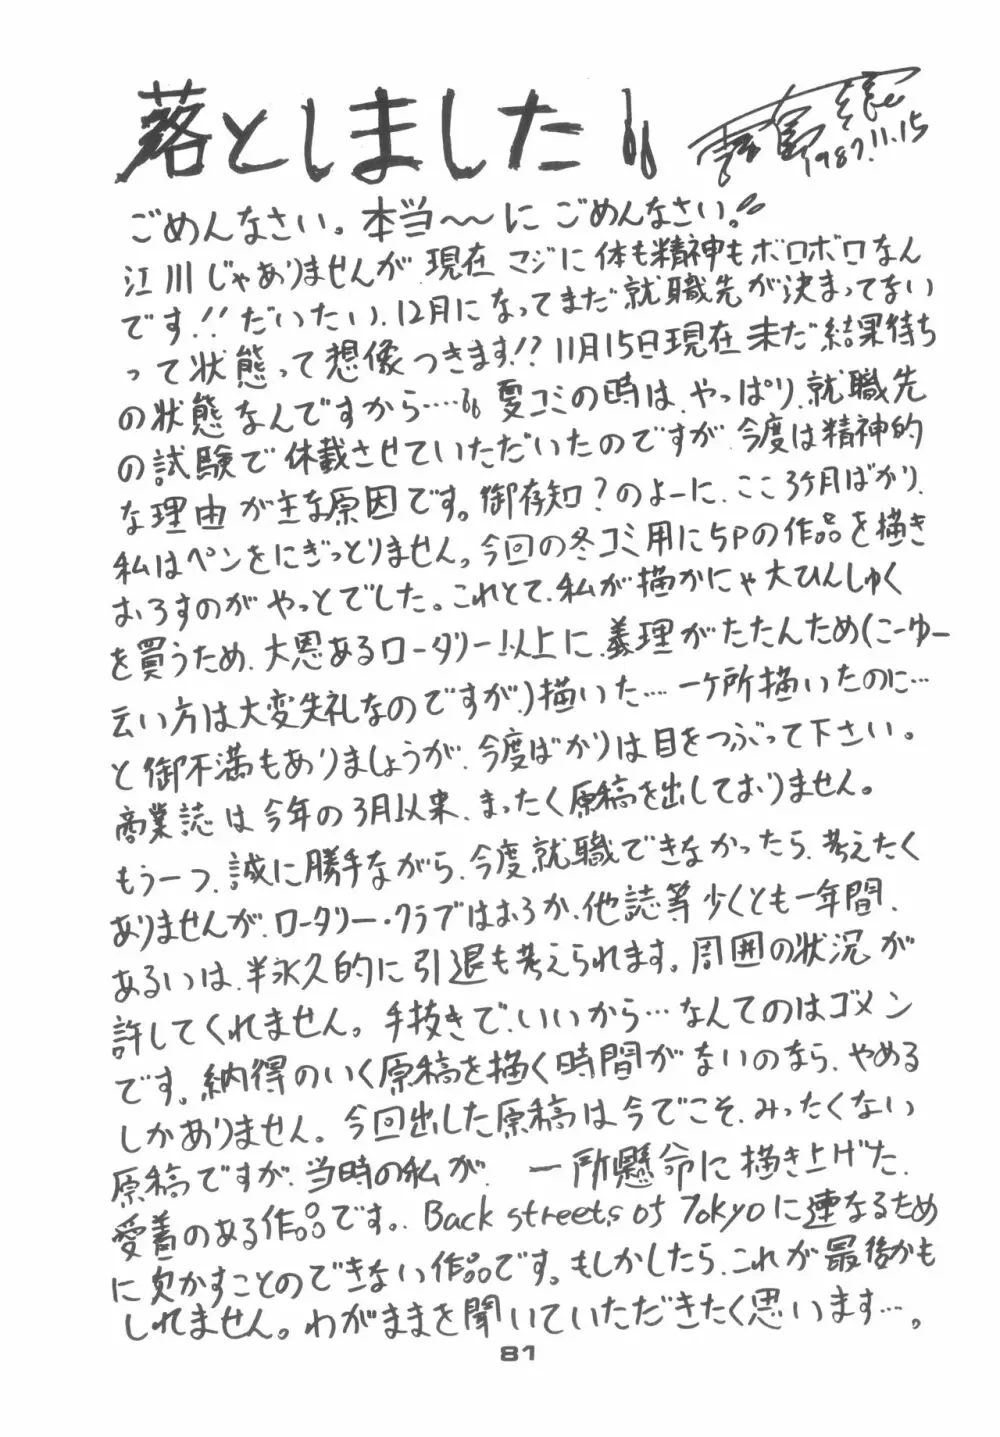 落としました
1987.11.15
ごめんなさい。本当〜〜にごめんなさい。
江川じゃありませんが現在マジに体も精神もボロボロなん
です!!だいたい、12月になってまだ就職先が決まってない
って状態って想像つきます!?11月15日現在未だ結果待ち
の状態なんですから……夏コミの時は、やっぱり、就職先
の試験で休載させていただいたのですが、今度は精神的
な理由が主な原因です。御存知?のよーに、ここ3ヶ月ばかり、
私はペンをにぎっとりません。今回の冬コミ用に5Pの作品を描き
おろすのがやっとでした。これとて、私が描かにゃ大ひんしゅく
を買うため、大恩あるロータリー以上に、義理がたたんため(こーゆー
云い方は大変失礼なのですが)描いた……一ヶ所描いたのに…
と御不満もありましょうが、今度ばかりは目をつぶって下さい。
商業誌は今年の3月以来、まったく原稿を出しておりません。
もう一つ、誠に勝手ながら、今度就職できなかったら、考えたく
ありませんが、ロータリー・クラブはおろか、他誌等少くとも一年間、
あるいは、半永久的に引退も考えられます。周囲の状況が
許してくれません。手抜きで、いいから…なんてのはゴメン
です。納得のいく原稿を描く時間がないのなら、やめる
しかありません。今回出した原稿は今でこそ、みったくない
原稿ですが、当時の私が、一所懸命に描き上げた、
愛着のある作品です。Back streets of Tokyoに連なるため
に欠かすことのできない作品です。もしかしたら、これが最後かも
しれません。わがままを聞いていただきたく思います…。
81